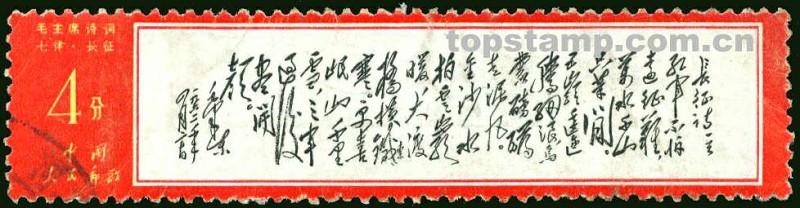 topstamp.com.cn
毛主席诗词
七律·长征
4分
中国
人民邮政
长征诗一首
红军不怕
远征难，
万水千山
只等闲。
五岭逶迤
腾细浪，乌
蒙磅礴
走泥丸。
金沙水
拍云崖
暖，大渡
桥横铁索
寒。更喜
岷山千里
雪，三军
过后
尽开
颜。
毛泽东
一九六二年
四月廿日